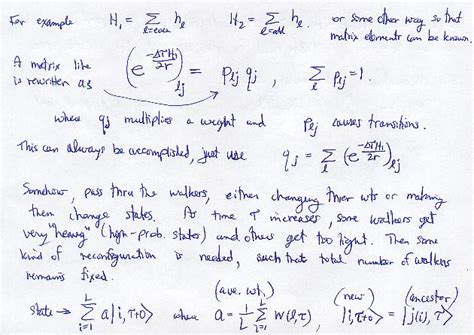 For example H₁ = Σ_{l=even} h_l H₂ = Σ_{l=odd} h_l or some other way so that
matrix elements can be known.
A matrix like (e^{-ΔτH₁/2r})_{lj} = p_{lj} q_j , Σ_l p_{lj} = 1.
is rewritten as
where q_j multiplies a weight and p_{lj} causes transitions.
This can always be accomplished, just use q_j = Σ_l (e^{-ΔτH₁/2r})_{lj}
Somehow, pass thru the walkers, either changing their wts or making
them change states. As time τ increases, some walkers get
very "heavy" (high-prob. states) and others get too light. Then some
kind of reconfiguration is needed, such that total number of walkers
remains fixed.
(ave. wt.) (new) (ancestor)
state → Σ_{i=1}^{L} a|i,τ+0⟩ where a = 1/L Σ_{i=1}^{L} W(i,τ) |i,τ+0⟩ = |j(i),τ⟩